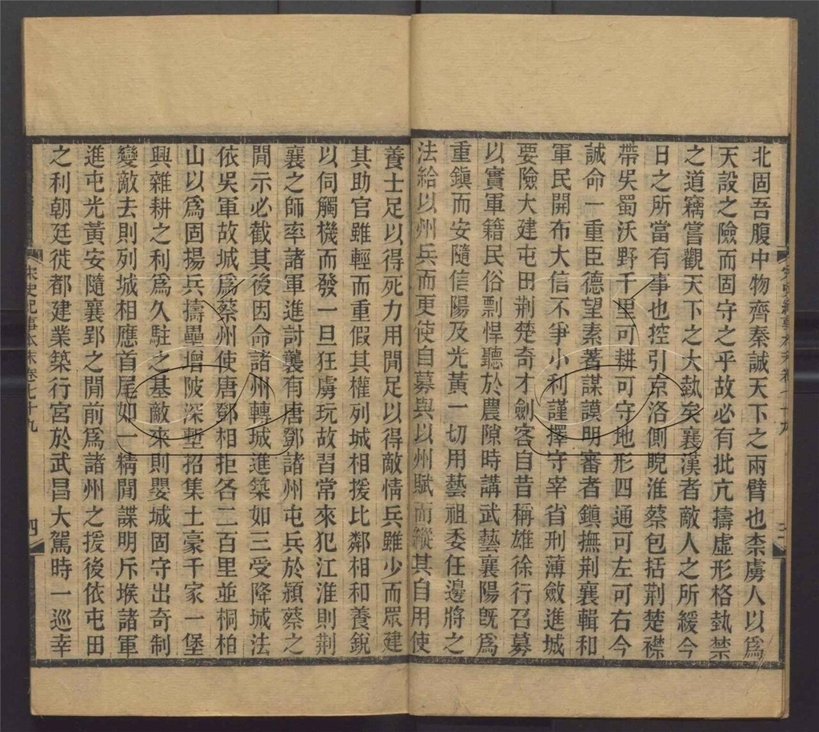 北固吾腹中物齊秦誠天下之兩臂也柰虜人以爲
天設之險而固守之乎故必有批亢擣虛形格埶禁
之道竊嘗觀天下之大埶矣襄漢者敵人之所緩今
日之所當有事也控引京洛側睨淮蔡包括荆楚襟
帶吳蜀沃野千里可耕可守地形四通可左可右今
誠命一重臣德望素著謀謨明審者鎭撫荆襄輯和
軍民開布大信不爭小利謹擇守宰省刑薄斂進城
要險大建屯田荆楚奇才劍客自昔稱雄徐行召募
以實軍籍民俗剽悍聽於農隙時講武藝襄陽旣爲
重鎭而安隨信陽及光黃一切用藝祖委任邊將之
法給以州兵而更使自募與以州賦而縱其自用使
養士足以得死力用閒足以得敵情兵雖少而眾建
其助官雖輕而重假其權列城相援比鄰相和養銳
以伺觸機而發一旦狂虜玩故習常來犯江淮則荆
襄之師率諸軍進討襲有唐鄧諸州屯兵於潁蔡之
閒示必截其後因命諸州轉城進築如三受降城法
依吳軍故城爲蔡州使唐鄧相拒各二百里並桐柏
山以爲固揚兵擣壘增陂深塹招集土豪千家一堡
興雜耕之利爲久駐之基敵來則嬰城固守出奇制
變敵去則列城相應首尾如一精閒諜明斥堠諸軍
進屯光黃安隨襄郢之閒前爲諸州之援後依屯田
之利朝廷徙都建業築行宮於武昌大駕時一巡幸
宋史紀事本末 卷七十九
四